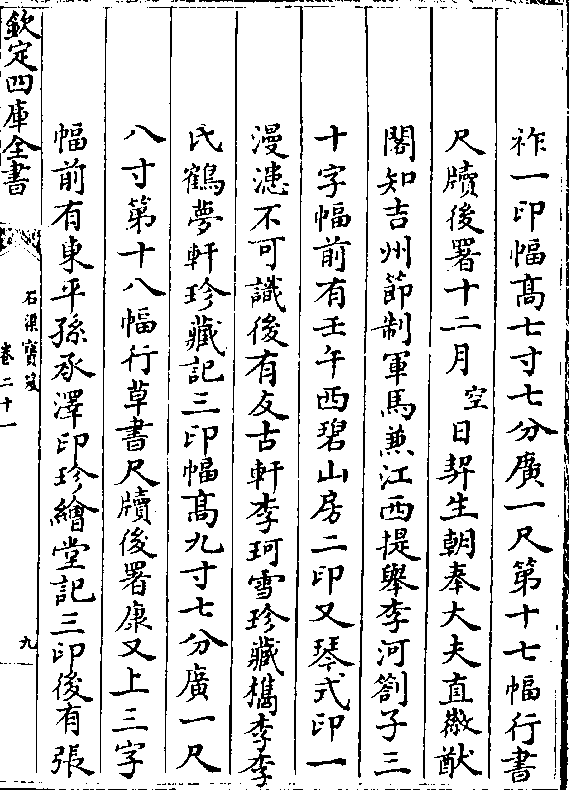 祚一印幅髙七寸七分廣一尺第十七幅行書
尺牘後署十二月空日契生朝奉大夫直徽猷
閣知吉州節制軍馬兼江西提舉李河劄子三
十字幅前有壬午西碧山房二印又琴式印一
漫漶不可識後有友古軒李珂雪珍藏檇李李
氏鶴夢軒珍藏記三印幅髙九寸七分廣一尺
八寸第十八幅行草書尺牘後署康又上三字
幅前有東平孫承澤印珍繪堂記三印後有張
欽定四庫全書
石渠寶笈
卷二十一
九